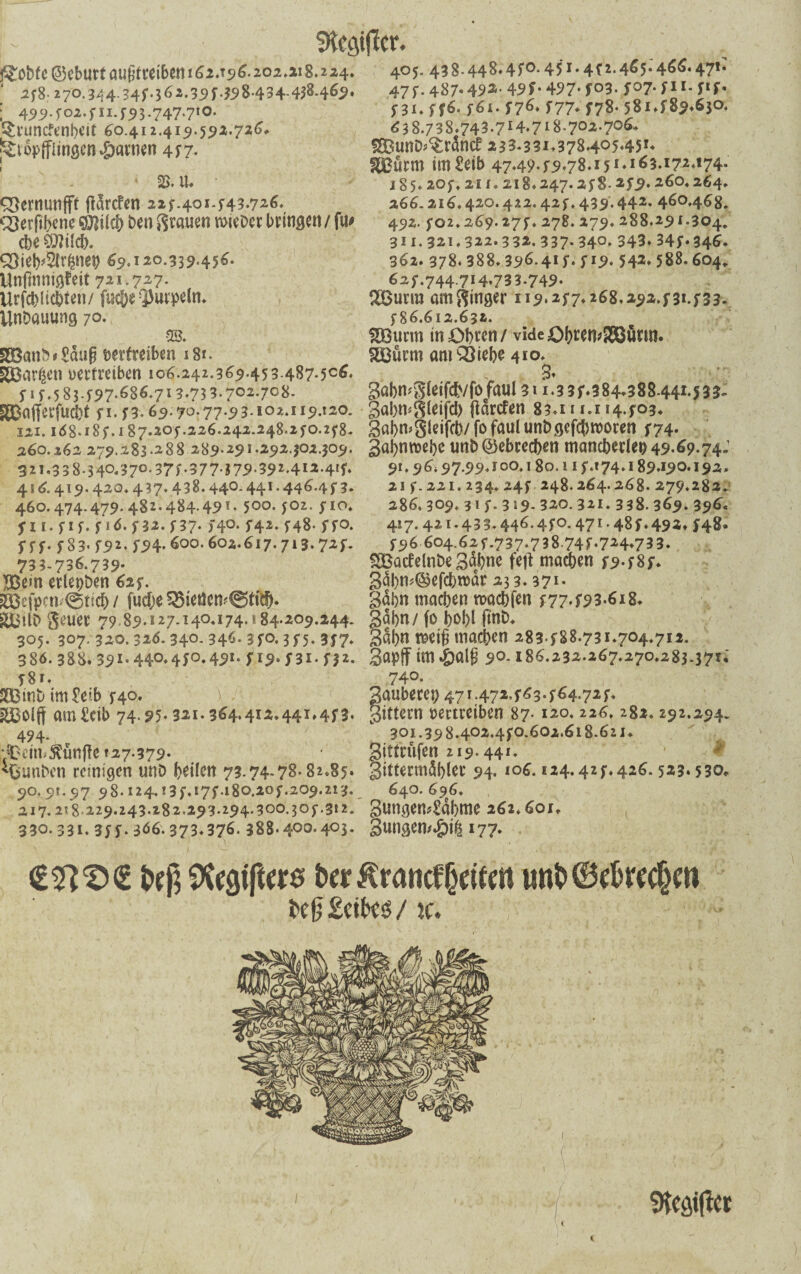 Regiſter.
Todte Geburt außtreiben 162.196.202.218.224.
258.270.344.345.362.395.398.434.438.469.
499.502.511.593.747.710.
Trunckenheit 60.412.419.592.726.
Tröpfflingen Harnen 457.
V. U.
Vernunfft ſtärcken 225.401.543.726.
Verſihene Milch den Frauen wieder bringen / ſu⸗
che Milch.
Vieh⸗Artzney 69.120.339.456.
Unſinnigkeit 721.727.
Urſchlichten / ſuche Purpeln.
Undauung 70.
W.
Wand⸗Läuß vertreiben 181.
Wartzen vertreiben 106.242.369.453.487.506.
515.583.597.686.713.733.702.708.
Waſſerſucht 51.53.69.70.77.93.102.119.120.
121.168.185.187.205.226.242.248.250.258.
260.262.279.283.288.289.291.292.302.309.
321.338.340.370.375.377.379.392.412.415.
416.419.420.437.438.440.441.446.453.
460.474.479.482.484.491.500.502.510.
511.515.516.532.537.540.542.548.550.
555.583.592.594.600.602.617.713.725.
733.736.739.
Wein erleyden 625.
Weſpen⸗Stich / ſuche Bienen⸗Stich.
Wild Feuer 79.89.127.140.174.184.209.244.
305.307.320.326.340.346.350.355.357.
386.388.391.440.450.491.519.531.532.
581.
Wind im Leib 540.
Wolff am Leib 74.95.321.364.412.441.453.
494.
Wein⸗Künſte 127.379.
Wunden reinigen und heilen 73.74.78.82.85.
90.91.97.98.124.135.175.180.205.209.213.
217.218.229.243.282.293.294.300.305.312.
330.331.355.366.373.376.388.400.403.
405.438.448.450.451.452.465.466.471.
475.487.492.495.497.503.507.511.515.
531.556.561.576.577.578.581.589.630.
638.738.743.714.718.702.706.
Wund⸗Tränck 233.331.378.405.451.
Würm im Leib 47.49.59.78.151.163.172.174.
185.205.211.218.247.258.259.260.264.
266.216.420.422.425.439.442.460.468.
492.502.269.275.278.279.288.291.304.
311.321.322.332.337.340.343.345.346.
362.378.388.396.415.519.542.588.604.
625.744.714.733.749.
Wurm am Finger 119.257.268.292.531.533.
586.612.632.
Wurm in Ohren / vide Ohren⸗Würm.
Würm am Viehe 410.
Z.
Zahn⸗Fleiſch / ſo faul 311.335.384.388.441.533.
Zahn⸗Fleiſch ſtärcken 83.111.114.503.
Zahn⸗Fleiſch / ſo faul und geſchworen 574.
Zahnwehe und Gebrechen mancherley 49.69.74.
91.96.97.99.100.180.115.174.189.190.192.
215.221.234.245.248.264.268.279.282.
286.309.315.319.320.321.338.369.396.
417.421.433.446.450.471.485.492.548.
596.604.625.737.738.745.724.733.
Wackelnde Zähne feſt machen 59.585.
Zähn⸗Geſchwär 233.371.
Zähn machen wachſen 577.593.618.
Zähn / ſo hohl ſind.
Zähn weiß machen 283.588.731.704.712.
Zapff im Halß 90.186.232.267.270.283.371.
740.
Zauberey 471.472.563.564.725.
Zittern vertreiben 87.120.226.282.292.294.
301.398.402.450.602.618.621.
Zittrüſen 219.441.
Zittermähler 94.106.124.425.426.523.530.
640.696.
Zungen⸗Lähme 262.601.
Zungen⸗Hitz 177.
ENDE deß Regiſters der Kranckheiten und Gebrechen
deß Leibes / ꝛc.
Regiſter